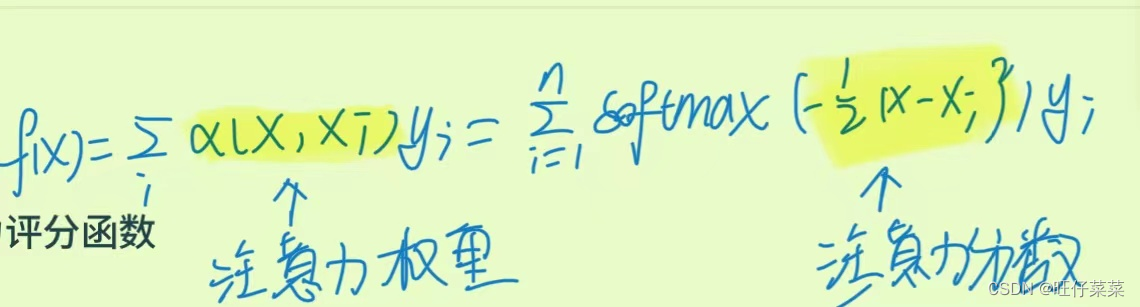 f(x) = ∑_i α(x, x_i) y_i = ∑_{i=1}^{n} softmax (-\frac{1}{2}(x - x_i)^2) y_i
评分函数
↑ ↑
注意力权重 注意力分数
CSDN @旺仔菜菜